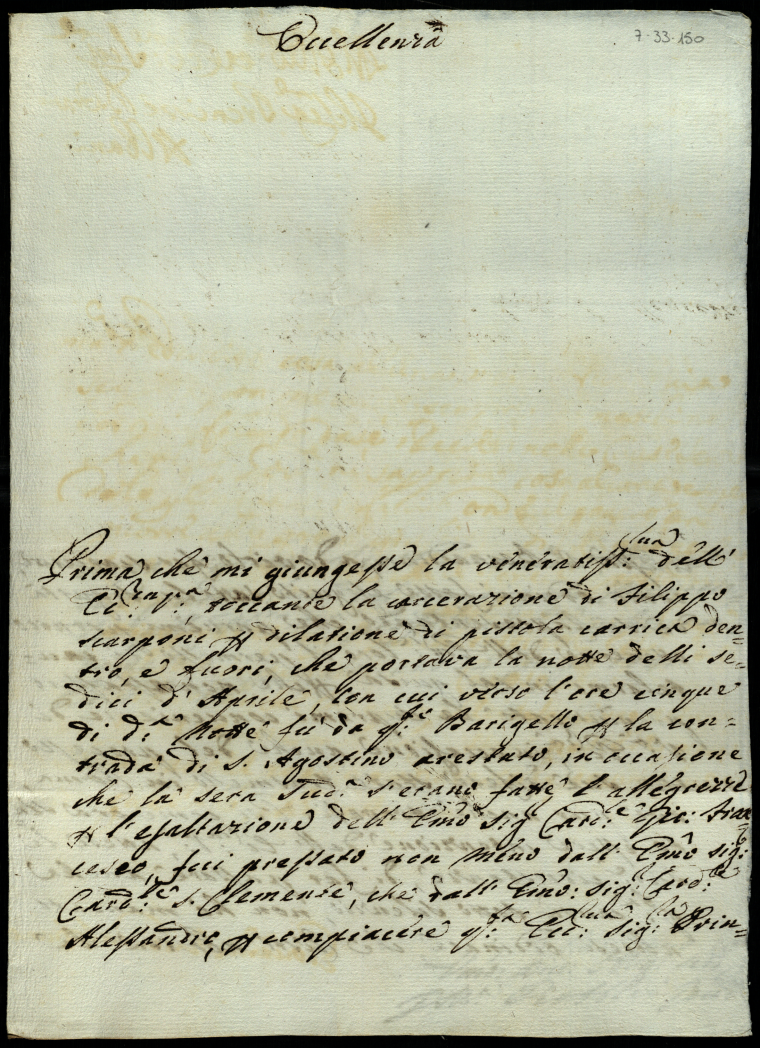 Eccellenza
7-33-150
Prima che mi giungesse la veneratiss:ma sua dell'
Ecc:za V:ra, toccante la carcerazione di Filippo
Scarponi p dilatione di pistola carrica den=
tro, e fuori, che portava la notte delli se=
dici d'Aprile, con cui verso l'ore cinque
di d:a notte fù da q:to Barigello p la con=
trada di S. Agostino arestato, in occasione
che la sera sud:a s'erano fatte l'allegrezze
p l'esaltazione dell'Emo Sig Card:e Gio: Fran=
cesco, fui pressato non meno dall'Emo Sig:
Card:le S. Clemente, che dall'Emo: Sig: Card:le
Alessandro, p compiacere q:ta Ecc:ma Sig:ra Prin=